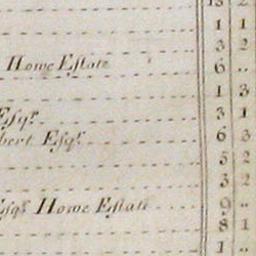 13 2
1 1
3 2
Howe Eſtate 6 ..
1 3
Eſqr. 3 1
bert Eſqr. 6 3
3 2
3 2
Eſqr. Howe Eſtate 9 ..
8 1
1 ..